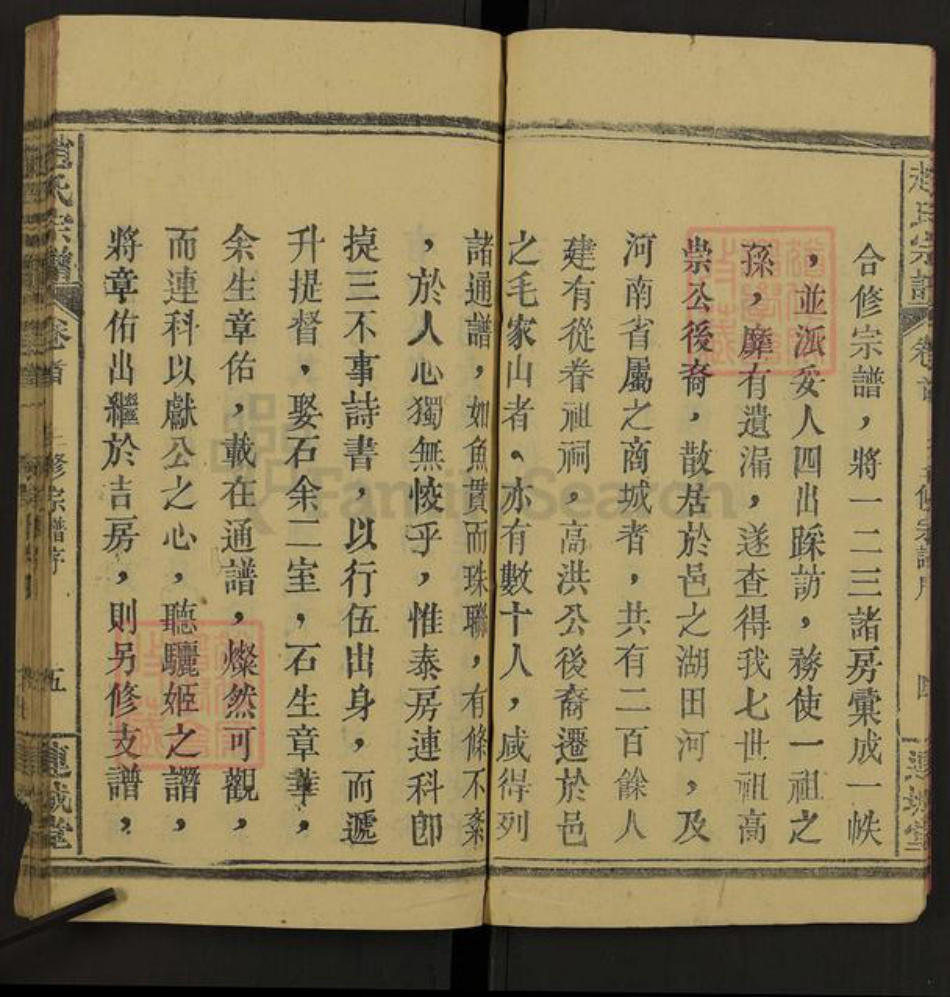 趙氏宗譜 卷首 三修宗譜序 四 連城堂
合修宗譜，將一二三諸房彙成一帙
，並派妥人四出踩訪，務使一祖之
孫，靡有遺漏，遂查得我七世祖高
崇公後裔，散居於邑之湖田河，及
河南省屬之商城者，共有二百餘人
建有從眷祖祠，高洪公後裔遷於邑
之毛家山者。亦有數十人，咸得列
諸通譜，如魚貫而珠聯，有條不紊
，於人心獨無憾乎，惟泰房連科卽
揁三不事詩書，以行伍出身，而遞
升提督，娶石余二室，石生章華，
余生章佑，載在通譜，燦然可觀，
而連科以獻公之心，聽驪姬之譖，
將章佑出繼於吉房，則另修支譜，
趙氏宗譜 卷首 三修宗譜序 五 連城堂
FamilySearch